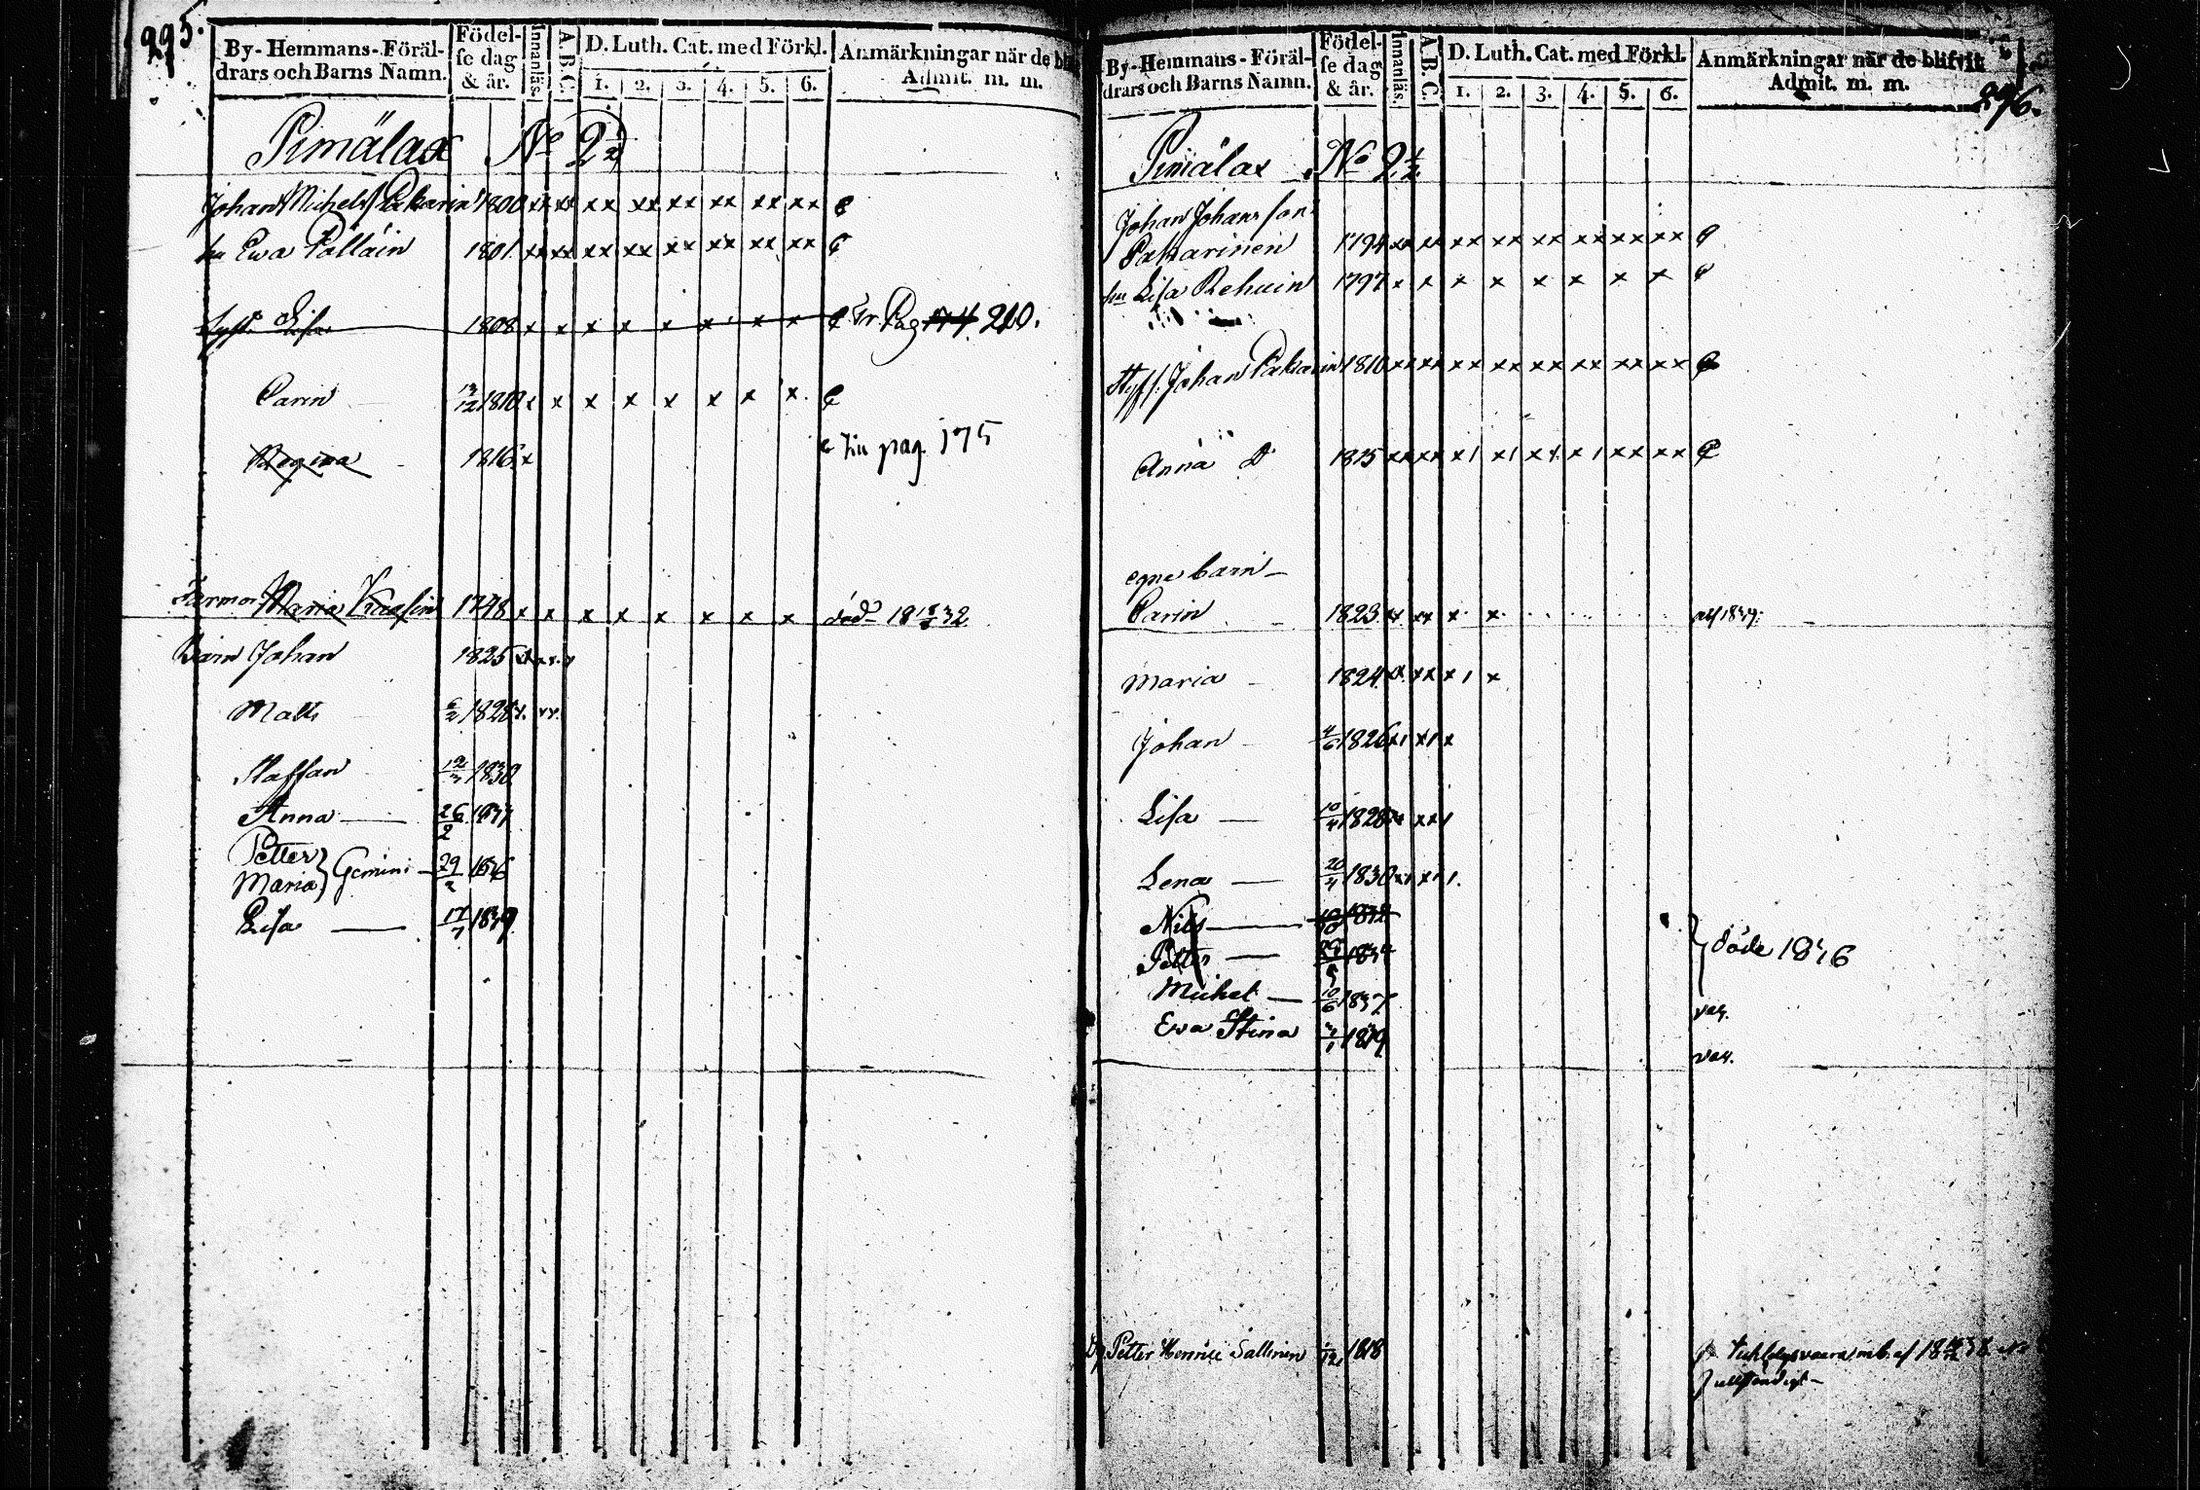 295.
By- Hemmans- Föräl-
drars och Barns Namn.
Födel-
se dag
& år.
Innanläs.
A. B. C.
D. Luth. Cat. med Förkl.
1. 2. 3. 4. 5. 6.
Anmärkningar när de bli
Admit. m. m.
Pimälax No 2½
Johan Michelss Pakarin 1800 xx xx xx xx xx xx xx xx
hu Ewa Pölläin 1801 xx xx xx xx xx xx xx xx
Syst. Lisa 1808 x x x x x x x x Tr. Pag 210.
Carin 1810 x x x x x x x x
Regina 1816 x pag. 175
Farmor Maria 1748 x x x x x x x x död 32
Barn Johan 1825
Matts 1828
Staffan 1830
Anna 26/2
Petter
Maria } Gemini 29/2 1836
Lisa 17/7 1839
By- Hemmans- Föräl-
drars och Barns Namn.
Födel-
se dag
& år.
Innanläs.
A. B. C.
D. Luth. Cat. med Förkl.
1. 2. 3. 4. 5. 6.
Anmärkningar när de blifvit
Admit. m. m.
296.
Pimälax No 2½
Johan Johansson
Pakarinen 1794 xx xx xx xx xx xx xx xx
hu Lisa Rehuin 1797 x x x x x x x x
Styfs. Johan Pakarin 1810 xx xx xx xx xx xx xx xx
Anna D 1815 xx xx x1 x1 xx x1 xx xx
egne barn
Carin 1823 xx xx x x
Maria 1824 xx x1 x
Johan 1826 x1 x1 x
Lisa 10/4 1828
Lena 20/4 1830
Nils 1832
Petter 1834
} döde 1836
Michel 10/6 1837 vac.
Ewa Stina 1839 vac.
Petter Henric Sallinen 1818